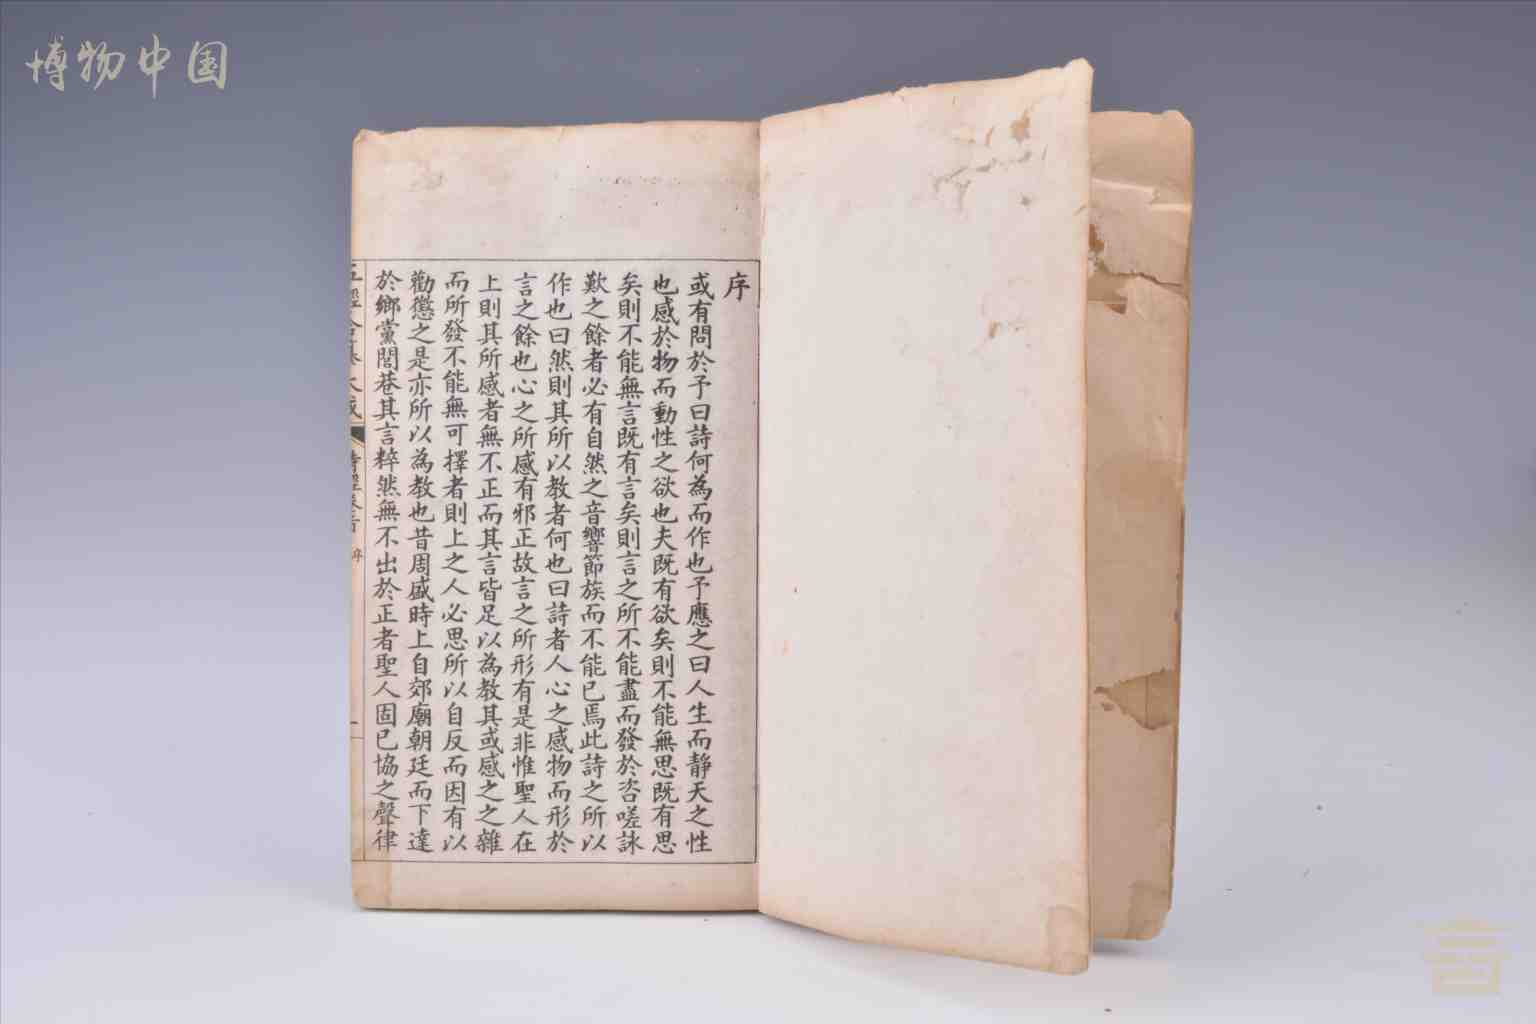 博物中国
序
或有問於予曰詩何為而作也予應之曰人生而靜天之性
也感於物而動性之欲也夫既有欲矣則不能無思既有思
矣則不能無言既有言矣則言之所不能盡而發於咨嗟詠
歎之餘者必有自然之音響節族而不能已焉此詩之所以
作也曰然則其所以教者何也曰詩者人心之感物而形於
言之餘也心之所感有邪正故言之所形有是非惟聖人在
上則其所感者無不正而其言皆足以為教其或感之之雜
而所發不能無可擇者則上之人必思所以自反而因有以
勸懲之是亦所以為教也昔周盛時上自郊廟朝廷而下達
於鄉黨閭巷其言粹然無不出於正者聖人固已協之聲律
五經合纂大成 詩經卷首 序 一